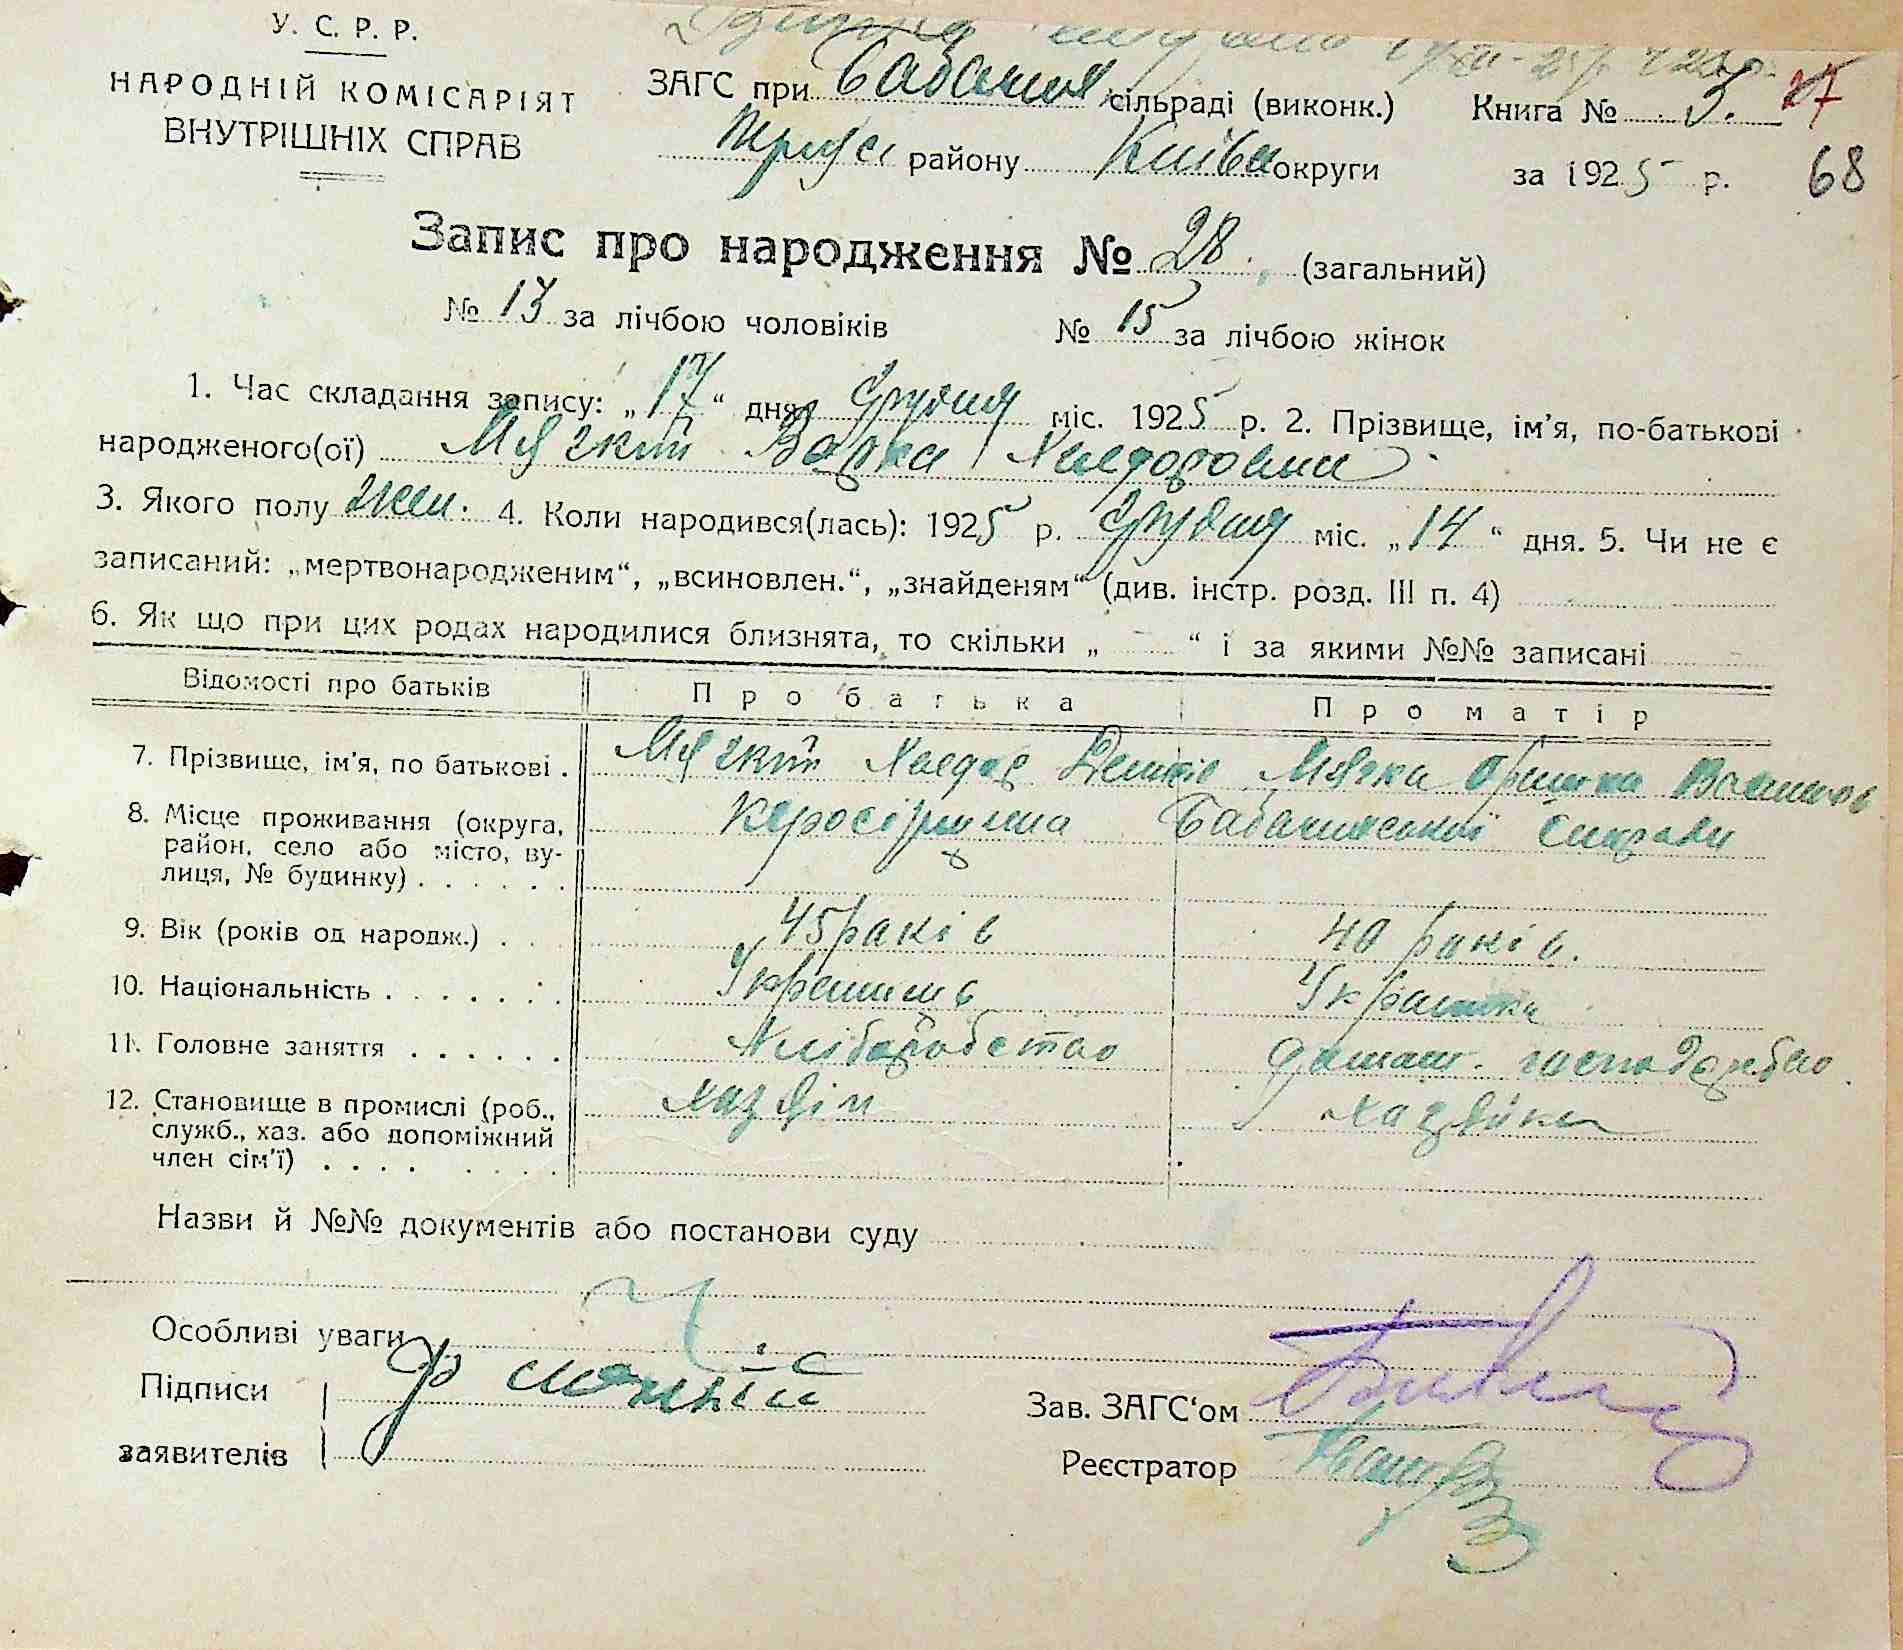 У. С. Р. Р.
НАРОДНІЙ КОМІСАРІЯТ
ВНУТРІШНІХ СПРАВ
ЗАГС при сільраді (виконк.) Книга № 3.
району Київ округи за 1925 р. 68
Запис про народження № 28 (загальний)
№ 13 за лічбою чоловіків № 15 за лічбою жінок
1. Час складання запису: „17“ дня Грудня міс. 1925 р. 2. Прізвище, ім'я, по-батькові
народженого(ої) Мягкий Варка Хведоровна
3. Якого полу жен. 4. Коли народився(лась): 1925 р. Грудня міс. „14“ дня. 5. Чи не є
записаний: „мертвонародженим“, „всиновлен.“, „знайденям“ (див. інстр. розд. III п. 4)
6. Як що при цих родах народилися близнята, то скільки „ “ і за якими №№ записані
Відомості про батьків Про батька Про матір
7. Прізвище, ім'я, по батькові . Мягкий Хведор Мягка
8. Місце проживання (округа,
район, село або місто, ву-
лиця, № будинку) . . . . . .
9. Вік (років од народж.) . . 45 років 40 років.
10. Національність . . . . . . . Українець Українка
11. Головне заняття . . . . . . Хліборобство домаш. господарство
12. Становище в промислі (роб.,
служб., хаз. або допоміжний
член сім'ї) . . . . . . . хазяїн хазяйка
Назви й №№ документів або постанови суду
Особливі уваги
Підписи
заявителів
Зав. ЗАГС'ом
Реєстратор